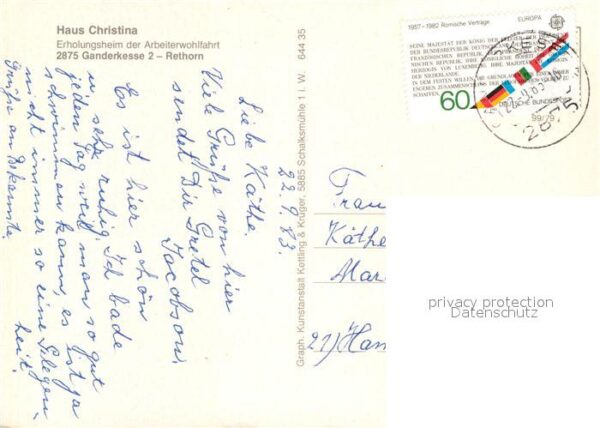 Haus Christina
Erholungsheim der Arbeiterwohlfahrt
2875 Ganderkesse 2 – Rethorn
22.9.83.
Liebe Käthe.
Viele Grüße von hier
sendet Dir Gretel
Jacobson,
Es ist hier schön
u. sehr ruhig. Ich bade
jeden Tag weil man so gut
schwimmen kann, es ist ja
nicht immer so eine Gelegen
heit!
Grüße an Bekannte.
Graph. Kunstanstalt Kettling & Krüger, 5885 Schalksmühle 1 i. W. 644 35
1957–1982 Römische Verträge
EUROPA
SEINE MAJESTÄT DER KÖNIG DER BELGIER, DER PRÄSIDENT
DER BUNDESREPUBLIK DEUTSCHLAND
FRANZÖSISCHEN REPUBLIK
NISCHEN REPUBLIK, IHRE KÖNIGLICHE HOHEIT
HERZOGIN VON LUXEMBURG, IHRE MAJESTÄT
DER NIEDERLANDE,
IN DEM FESTEN WILLEN, DIE GRUNDLAGEN
ENGEREN ZUSAMMENSCHLUSS DER
SCHAFFEN
60
DEUTSCHE BUNDESPOST
Frau
Käthe
Mar
21) Han
privacy protection
Datenschutz